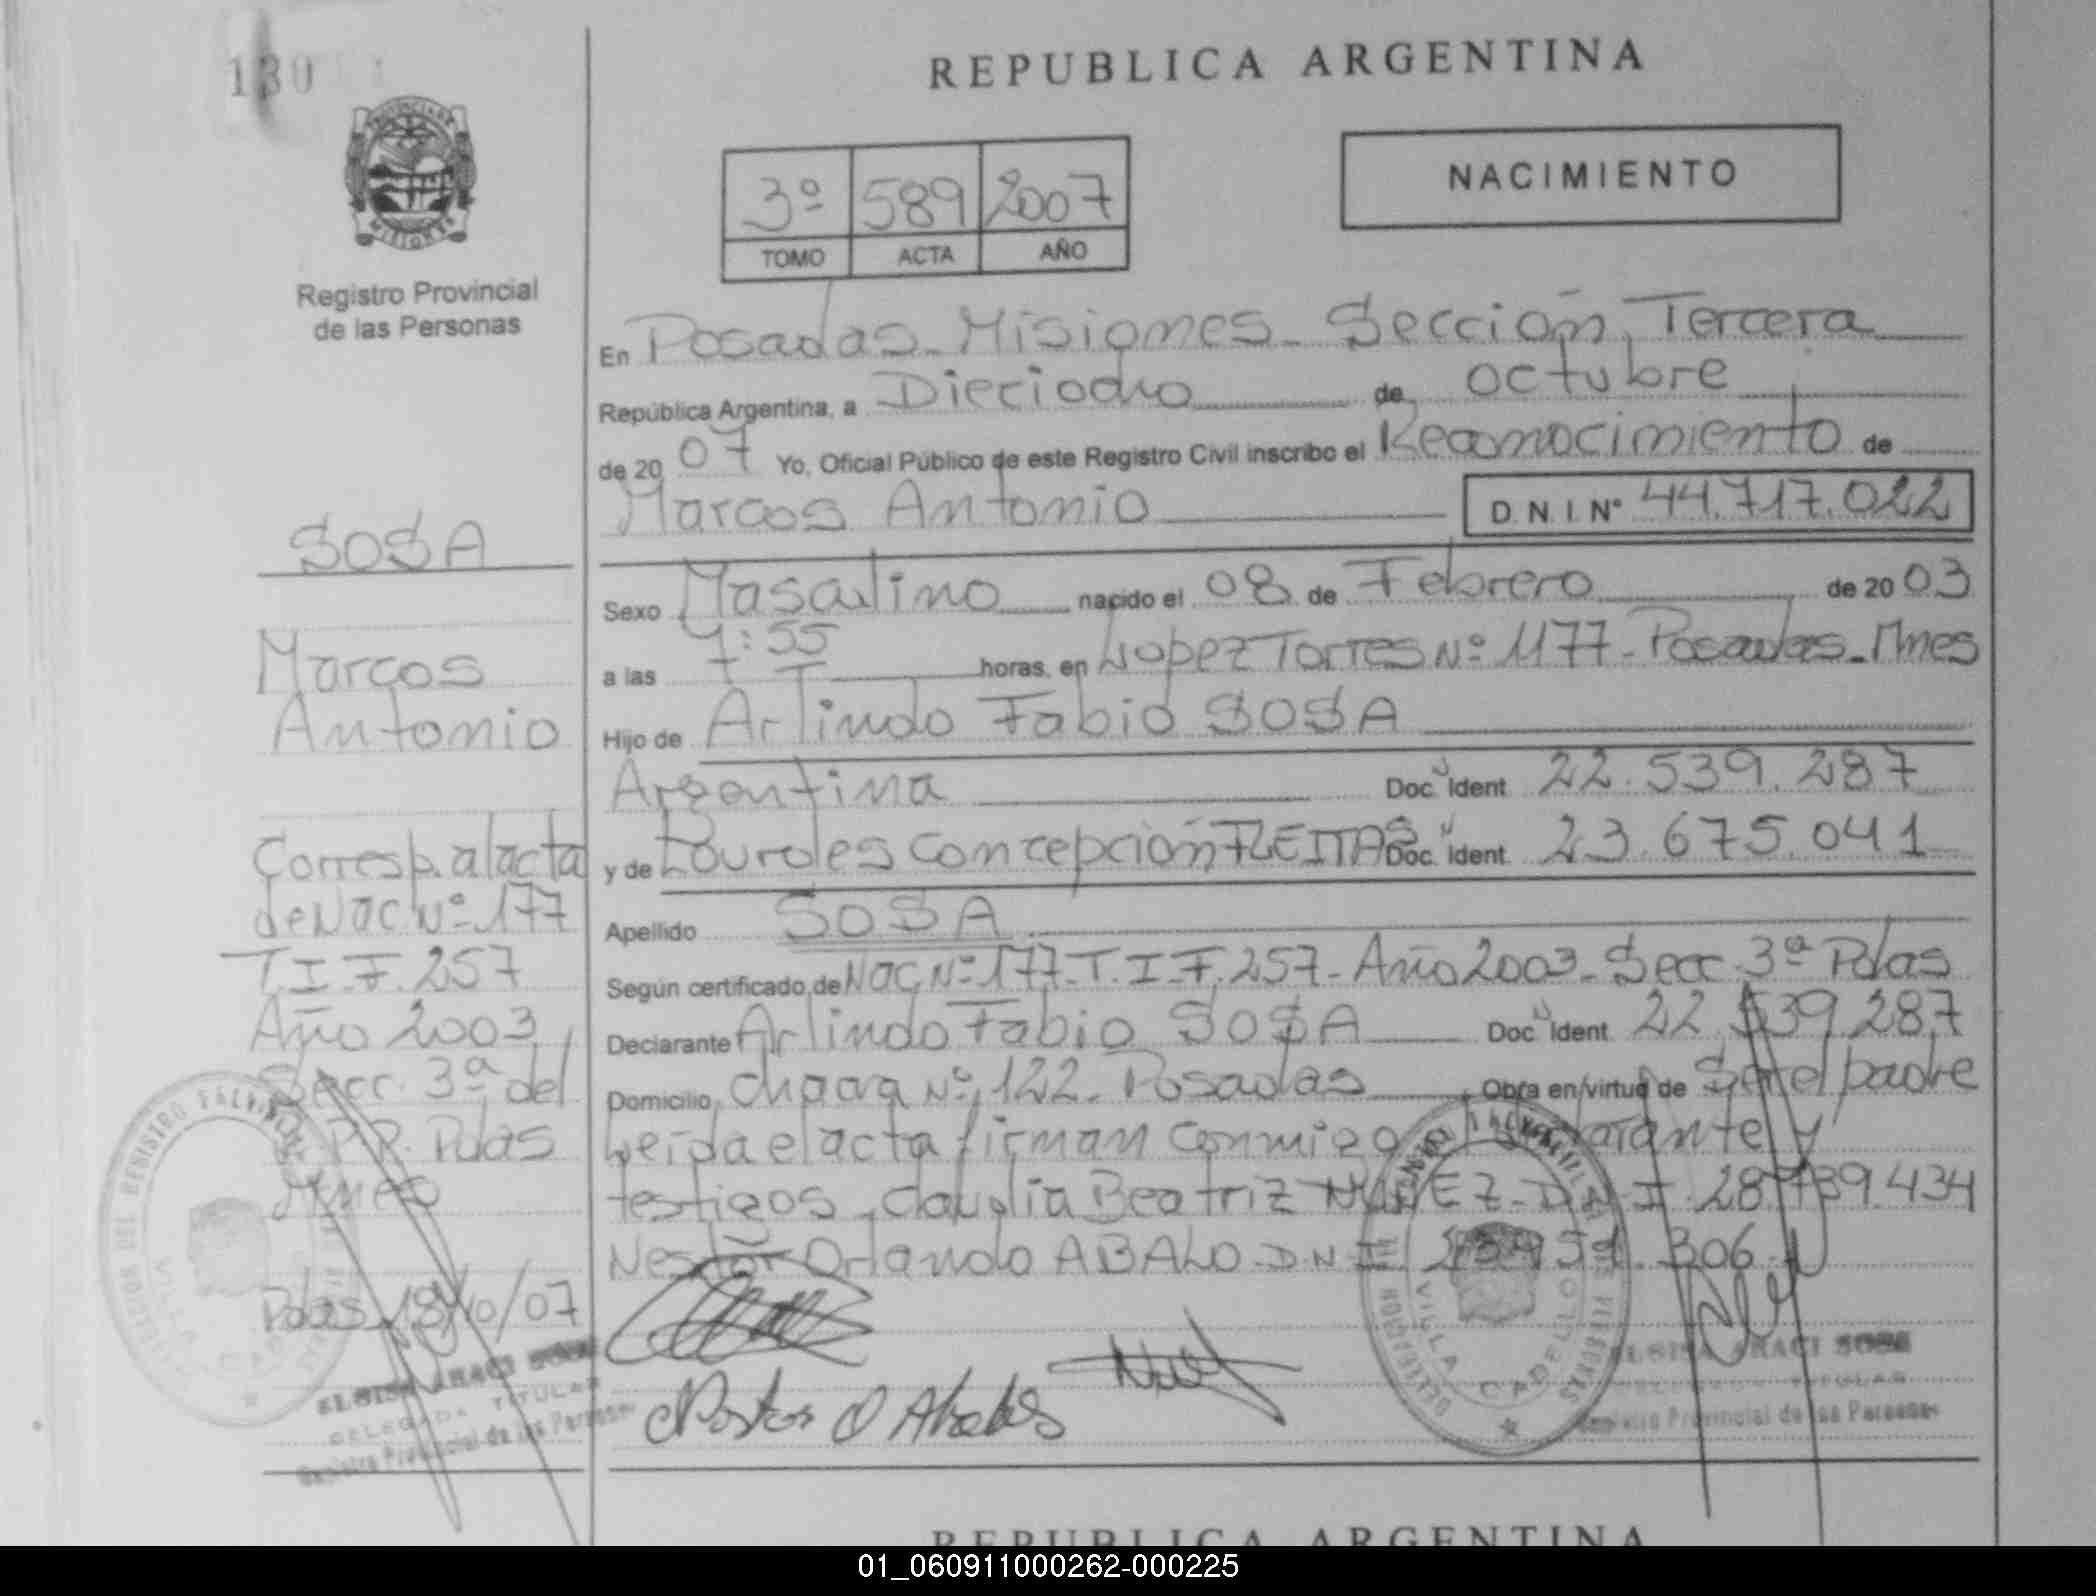 130
REPUBLICA ARGENTINA
PROVINCIA DE
MISIONES
Registro Provincial
de las Personas
3º 589 2007
TOMO ACTA AÑO
NACIMIENTO
En Posadas - Misiones - Sección Tercera
República Argentina, a Dieciocho de octubre
de 20 07 Yo, Oficial Público de este Registro Civil inscribo el Reconocimiento de
Marcos Antonio D.N.I. Nº 44.717.022
Sexo Masculino nacido el 08 de Febrero de 20 03
a las 7:55 horas, en Lopez Torres Nº 1177 - Posadas - Mnes
Hijo de Arlindo Fabio SOSA
Argentina Doc. Ident. 22.539.287
y de Lourdes Concepción FLEITAS Doc. Ident. 23.675.041
Apellido SOSA
Según certificado de Nac Nº 177 - T. I - F. 257 - Año 2003 - Secc. 3ª Pdas
Declarante Arlindo Fabio SOSA Doc. Ident. 22.539.287
Domicilio Chacra Nº 122 - Posadas Obra en virtud de Ser el padre
Leída el acta firman conmigo declarante y
testigos, Claudia Beatriz NUÑEZ - D.N.I. 28.739.434
Nestor Orlando ABALO - D.N.I. 306
SOSA
Marcos
Antonio
Corresp. al acta
de Nac Nº 177
T. I - F. 257
Año 2003
Secc. 3ª del
R.P. Pdas
Mnes
Pdas 18/10/07
ELOISA ARACI SOSA
DELEGADA TITULAR
Registro Provincial de las Personas
Nestor O Abalo
VILLA CABELLO
ELOISA ARACI SOSA
DELEGADA TITULAR
Registro Provincial de las Personas
REPUBLICA ARGENTINA
01_060911000262-000225